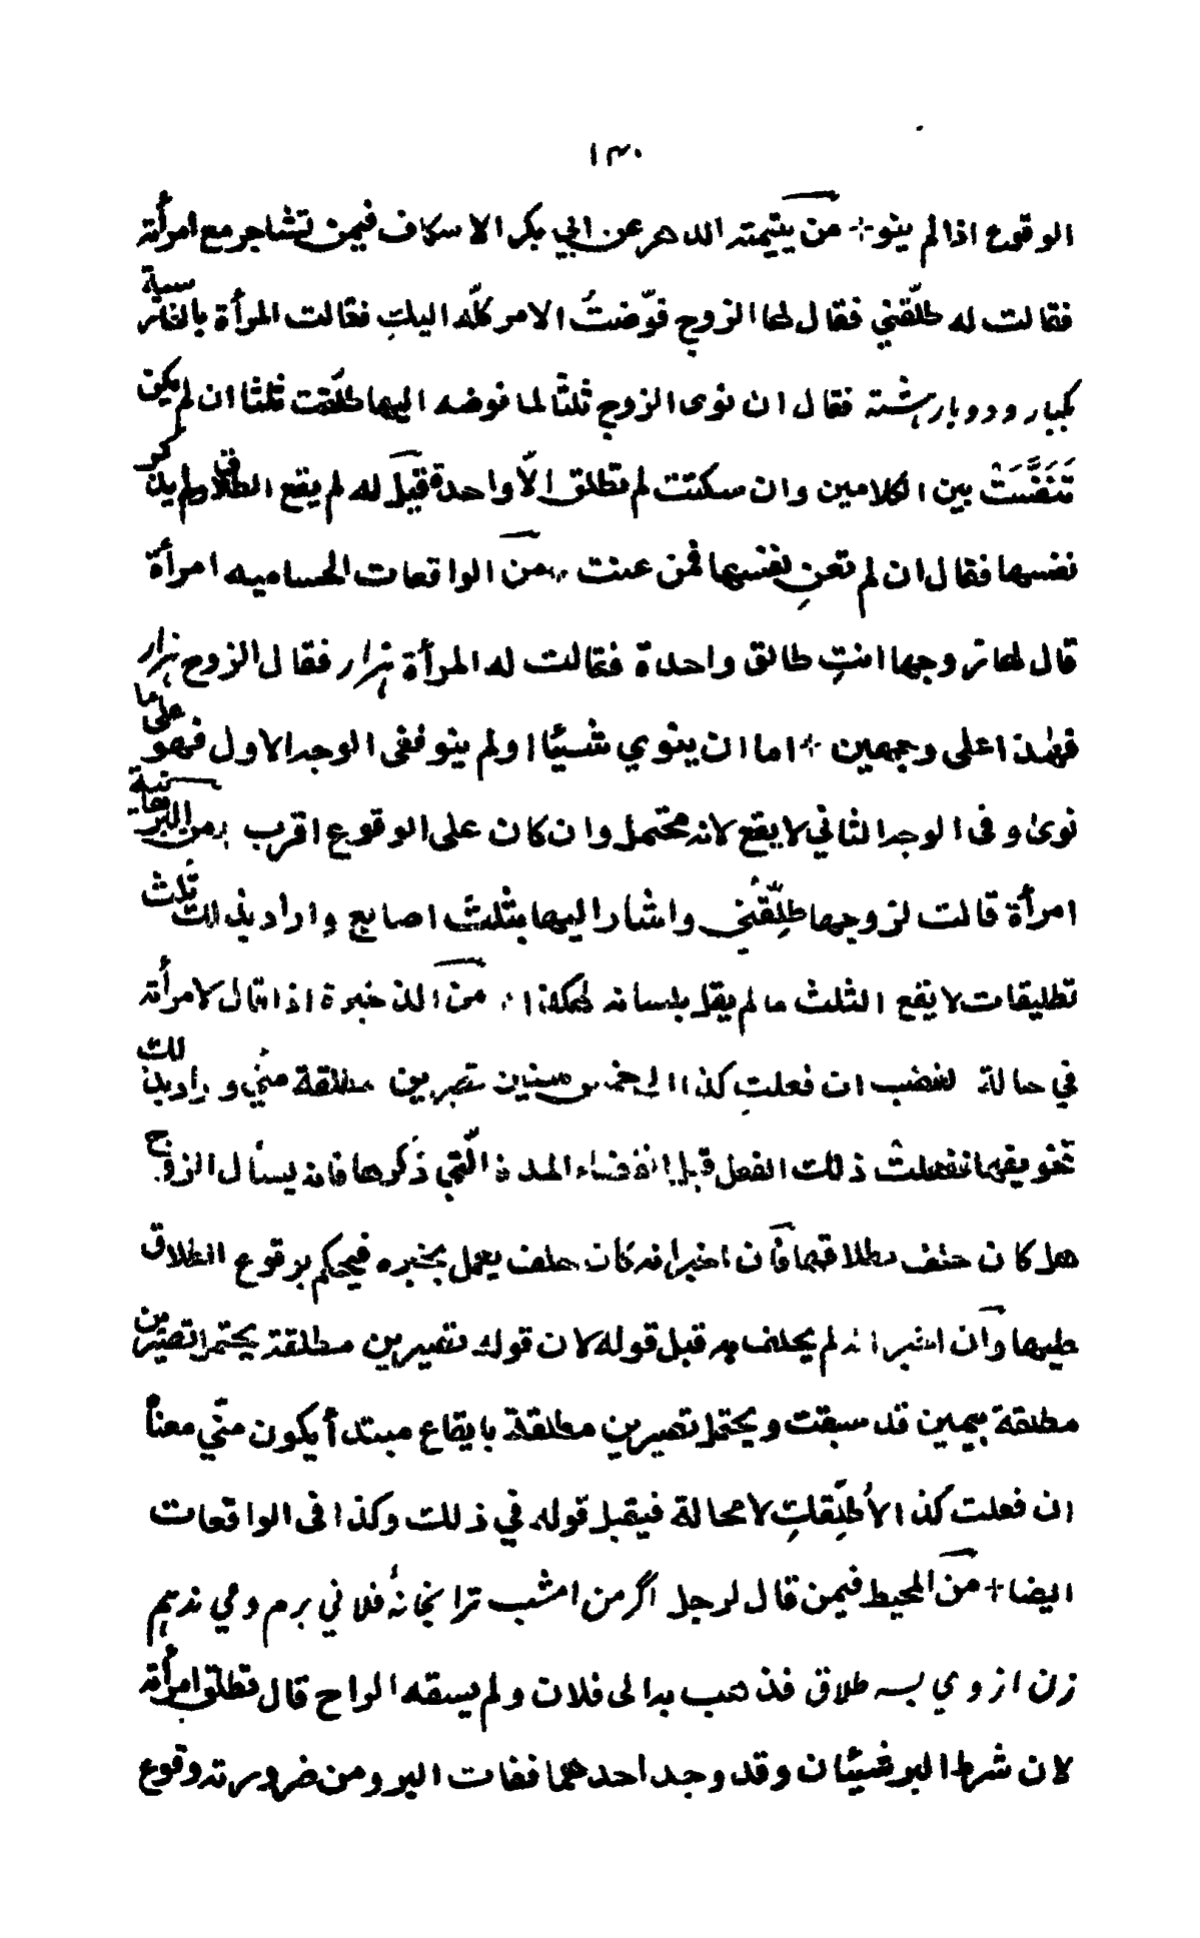 ١٣٠
الوقوع اذا لم ينو + من يتيمته الدهر عن ابي بكر الاسكاف فيمن تشاجر مع امرأته
فقالت له طلّقني فقال لها الزوج فوّضتُ الامر كلّه اليك فقالت المرأة بالفارسية
يكبار ودوبار هشته فقال ان نوى الزوج ثلثا لما فوضه اليها طلّقت ثلثا ان لم يكن
تَنَفَّسَتْ بين الكلامين وان سكتت لم تطلق الّا واحدة قيل له لم يقع الطلاق ولم يذكر
نفسها فقال ان لم تعنِ نفسها فمن عنت ؞ من الواقعات الحساميه امرأة
قال لها زوجها انتِ طالق واحدة فقالت له المرأة هزار فقال الزوج هزار
فهٰذا على وجهين + اما ان ينوي شيئا او لم ينو ففى الوجه الاول فهو على ما
نوىٰ وفى الوجه الثاني لا يقع لانه محتمل وان كان على الوقوع اقرب ؞ من البرهانية
امرأة قالت لزوجها طلِّقْني واشار اليها بثلث اصابع واراد بذلك ثلث
تطليقات لا يقع الثلث ما لم يقل بلسانه هكذا ؞ من الذخيرة اذا قال لامرأته
في حالة الغضب ان فعلتِ كذا الى خمس سنين تصيرين مطلقة منّي واراد بذلك
تخويفها ففعلت ذلك الفعل قبل انقضاء المدة الّتي ذكرها فانه يسأل الزوج
هل كان حلف بطلاقها فان اخبر انه كان حلف يعمل بخبره فيحكم بوقوع الطلاق
عليها وان اخبر انه لم يحلف به قبل قوله لان قوله تصيرين مطلقة يحتمل تصيّرين
مطلقة بيمين قد سبقت ويحتمل تصيرين مطلقة بايقاع مبتدأ يكون منّي معناه
ان فعلت كذا لأُطلِّقكِ لا محالة فيقبل قوله في ذلك وكذا فى الواقعات
ايضا + من المحيط فيمن قال لرجل اگر من امشب ترا بخانۀ فلاني برم ومي ندهم
زن از وي بسه طلاق فذهب به الى فلان ولم يسقه الراح قال تطلق امرأته
لان شرط البر شيئان وقد وجد احدهما ففات البر ومن ضرورته وقوع